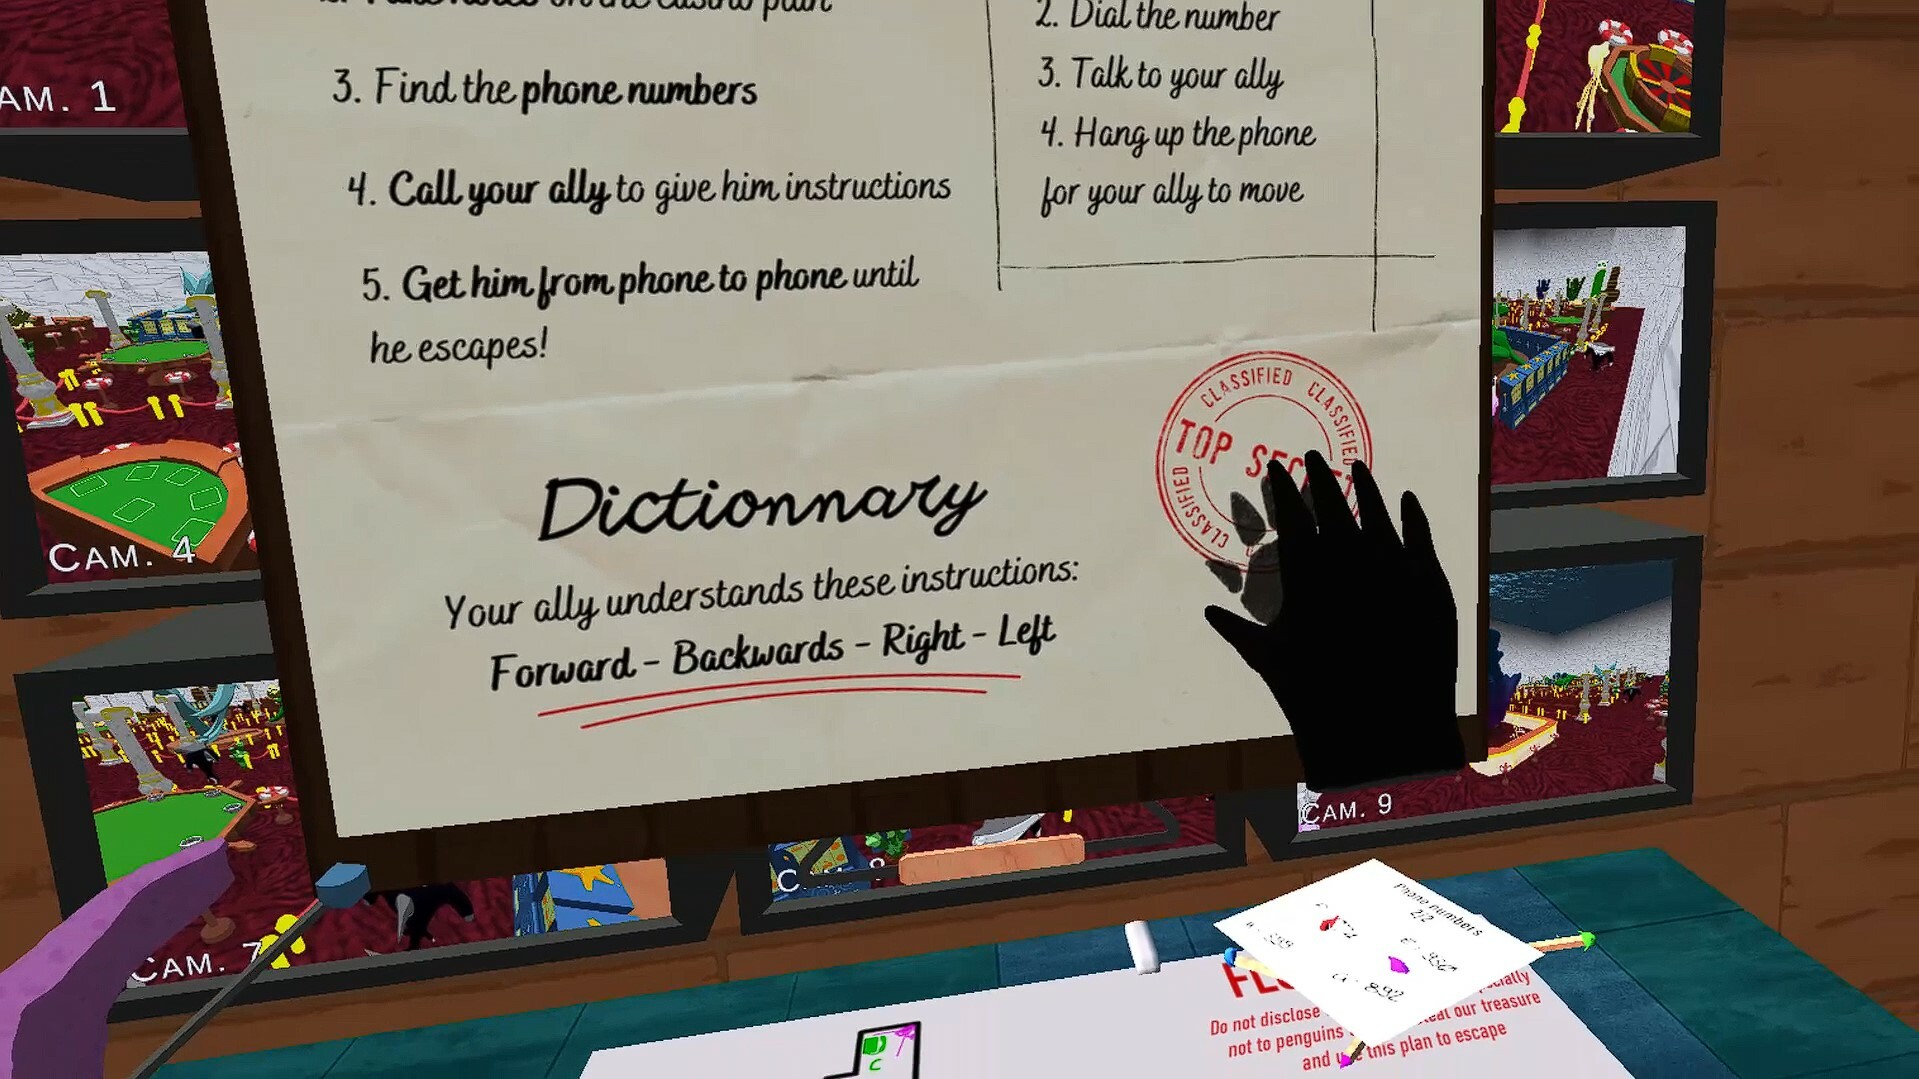 on the casino plan
3. Find the phone numbers
4. Call your ally to give him instructions
5. Get him from phone to phone until
he escapes!
2. Dial the number
3. Talk to your ally
4. Hang up the phone
for your ally to move
CLASSIFIED CLASSIFIED
TOP
CLASSIFIED
Dictionnary
Your ally understands these instructions:
Forward - Backwards - Right - Left
CAM. 4
CAM. 7
CAM. 9
Phone numbers
2/2
892
Do not disclose
our treasure
not to penguins
this plan to escape
and
C